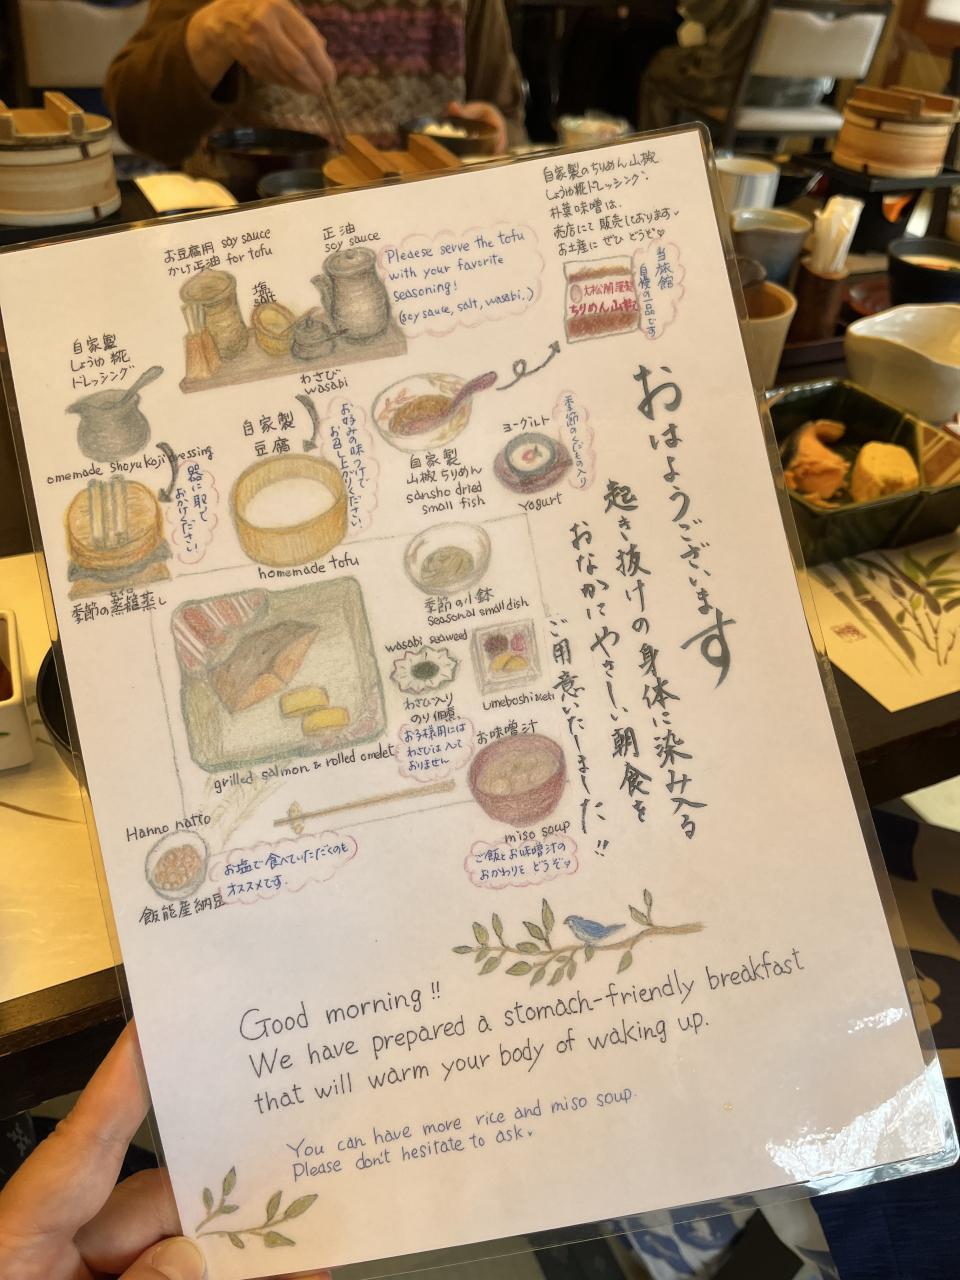 お豆腐用 soy sauce
かけ正油 for tofu
塩
salt
正油
soy sauce
Please serve the tofu
with your favorite
seasoning!
(soy sauce, salt, wasabi..)
自家製のちりめん山椒
しょうゆ糀ドレッシング、
朴葉味噌は、
売店にて販売しております。
お土産にぜひどうぞ♡
ちりめん山椒
当旅館
自慢の一品です
自家製
しょうゆ糀
ドレッシング
omemade shoyu koji dressing
器に取って
おかけください
季節の蒸籠蒸し
わさび
wasabi
自家製
豆腐
お好みの味つけで
お召し上がりください。
homemade tofu
自家製
山椒ちりめん
sansho dried
small fish
ヨーグルト
季節のくだもの入り
Yogurt
季節の小鉢
seasonal small dish
wasabi seaweed
わさび入り
のり佃煮、
お子様用には
わさびは入って
おりません
umeboshi
grilled salmon & rolled omelet
お味噌汁
miso soup
ご飯とお味噌汁の
おかわりを どうぞ♡
Hanno natto
お塩で食べていただくのも
オススメです。
飯能産納豆
おはようございます
起き抜けの身体に染み入る
おなかにやさしい朝食を
ご用意いたしました!!
Good morning!!
We have prepared a stomach-friendly breakfast
that will warm your body of waking up.
You can have more rice and miso soup.
Please don't hesitate to ask.